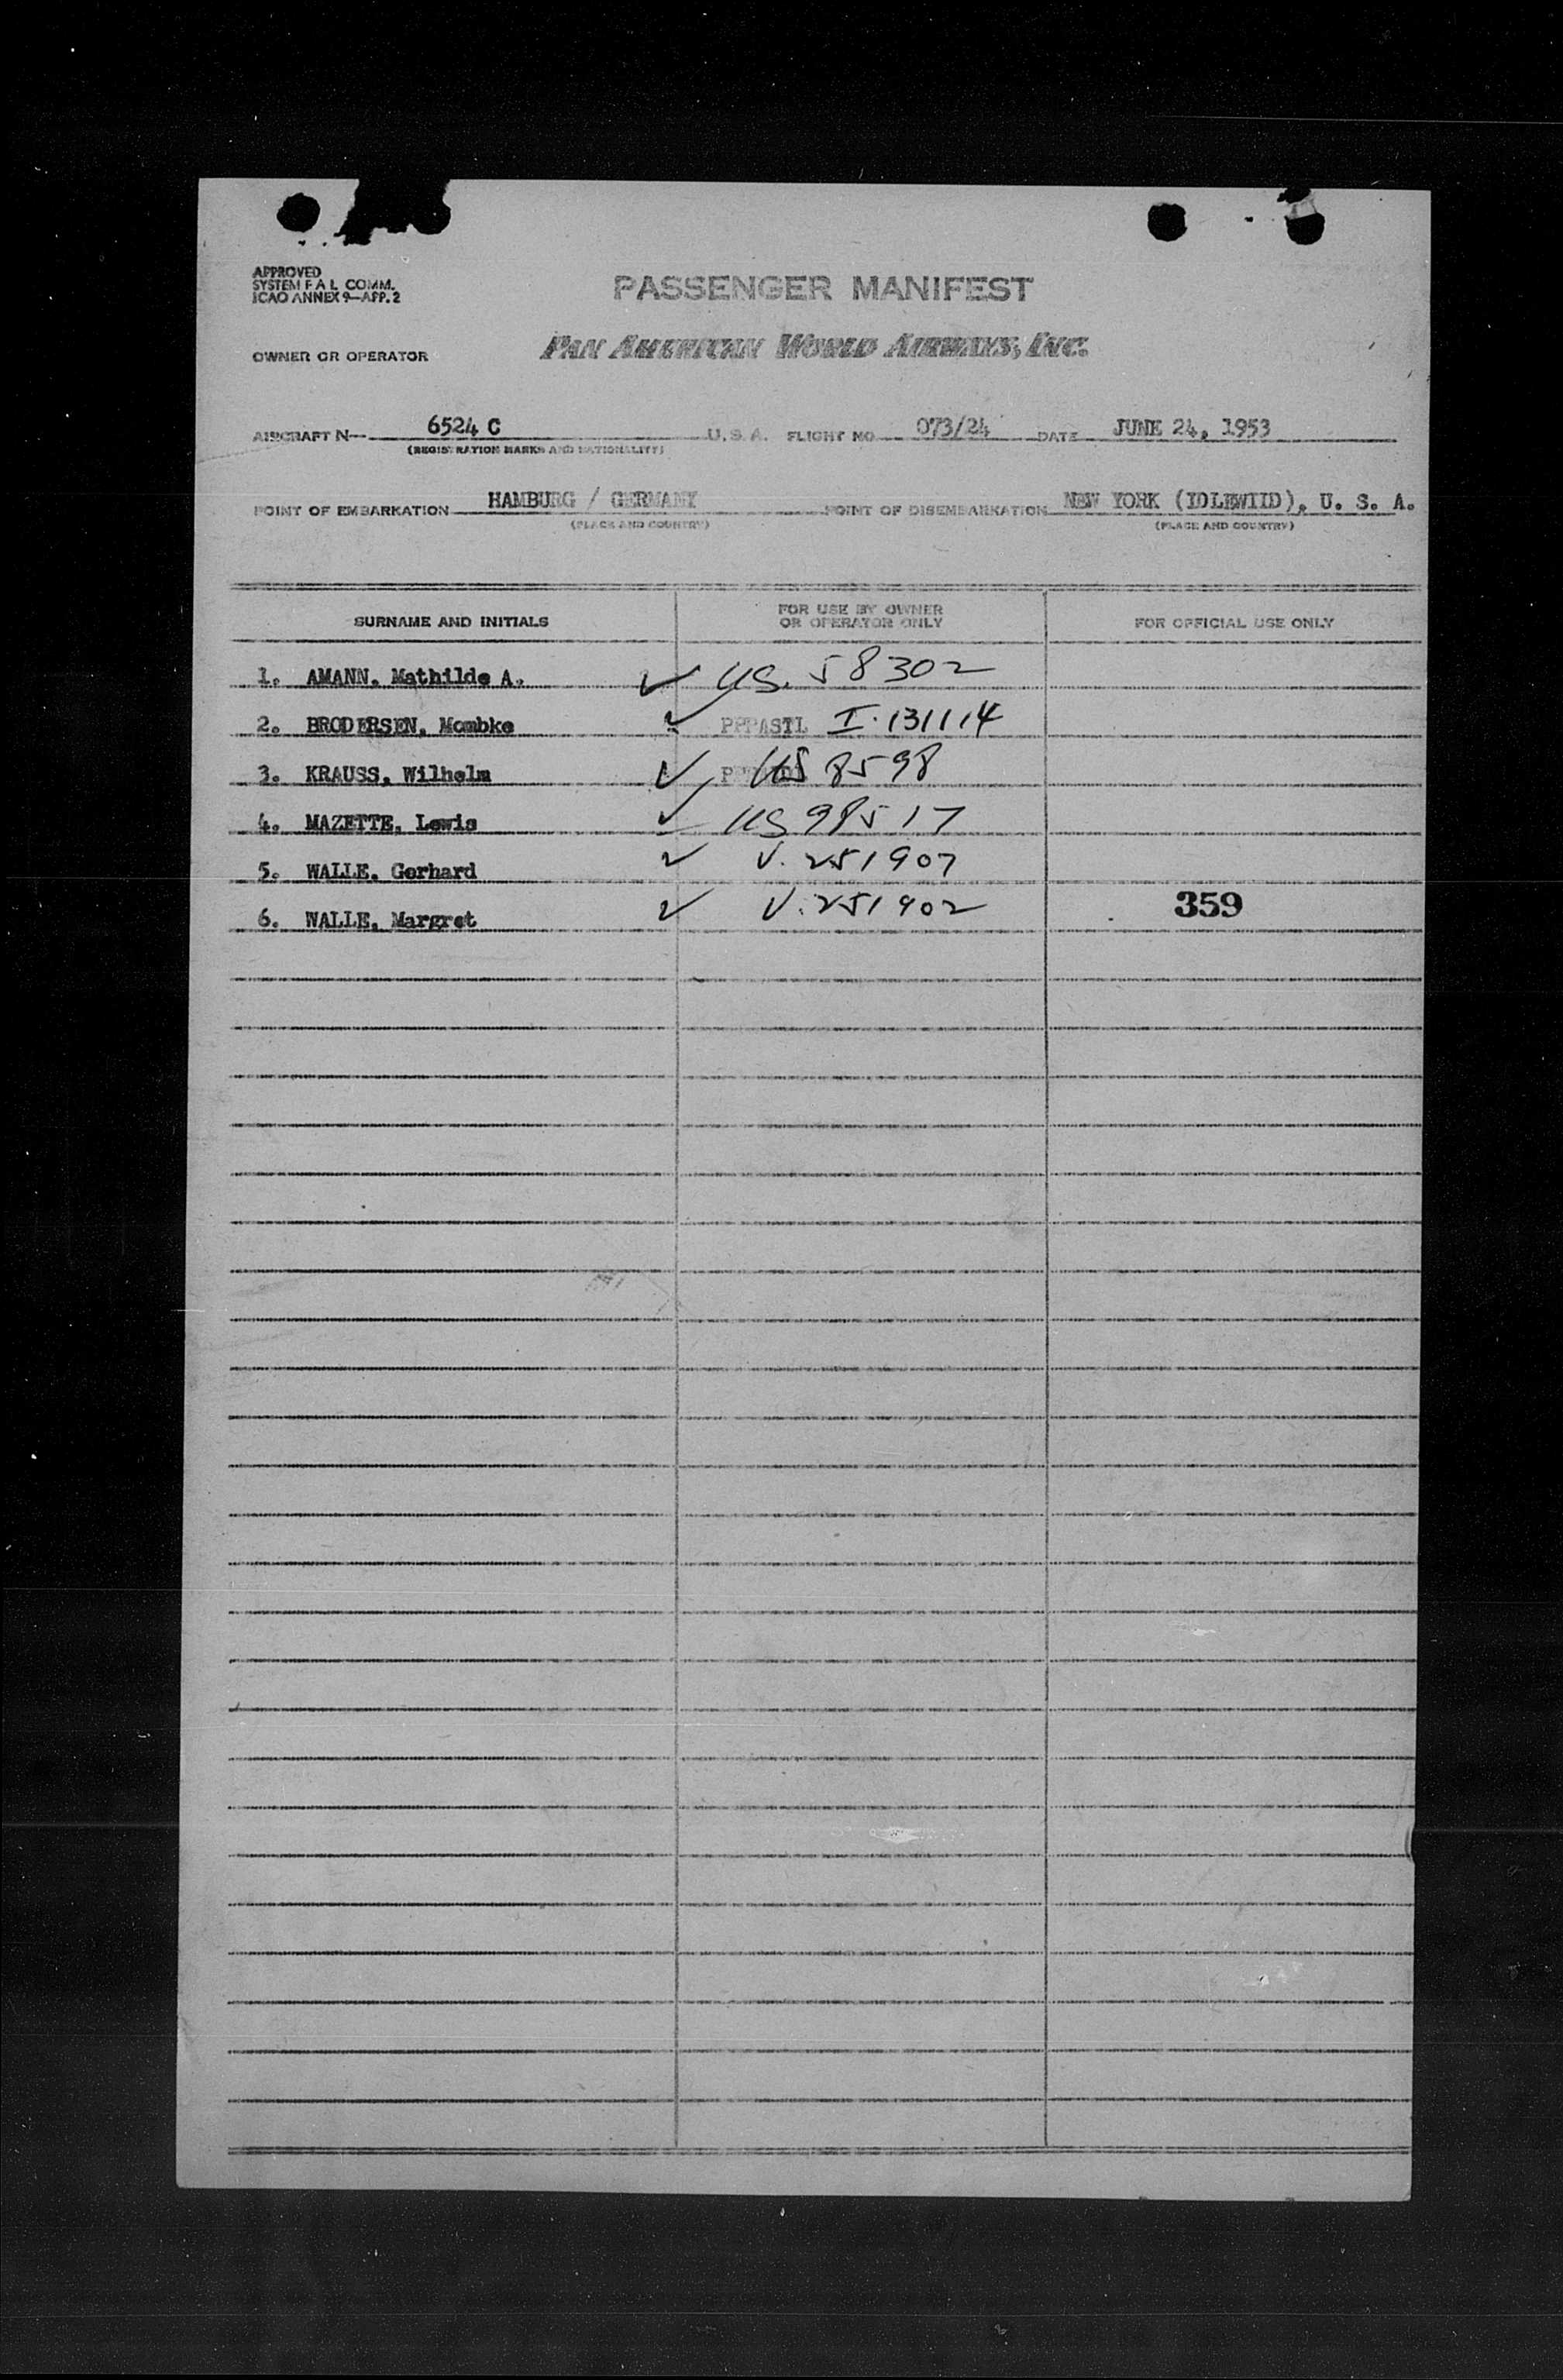 APPROVED
SYSTEM F A L COMM.
ICAO ANNEX 9—APP. 2
PASSENGER MANIFEST
OWNER OR OPERATOR PAN AMERICAN WORLD AIRWAYS, INC.
AIRCRAFT N— 6524 C U. S. A. FLIGHT NO 073/24 DATE JUNE 24, 1953
(REGISTRATION MARKS AND NATIONALITY)
POINT OF EMBARKATION HAMBURG / GERMANY POINT OF DISEMBARKATION NEW YORK (IDLEWIID), U. S. A.
(PLACE AND COUNTRY) (PLACE AND COUNTRY)
SURNAME AND INITIALS FOR USE BY OWNER OR OPERATOR ONLY FOR OFFICIAL USE ONLY
1. AMANN, Mathilde A. ✓ US. 58302
2. BRODERSEN, Mombke ✓ PPPASTL I. 131114
3. KRAUSS, Wilhelm ✓ US 8598
4. MAZETTE, Lewis ✓ US 98517
5. WALLE, Gerhard ✓ V. 251907
6. WALLE, Margret ✓ V. 251902 359